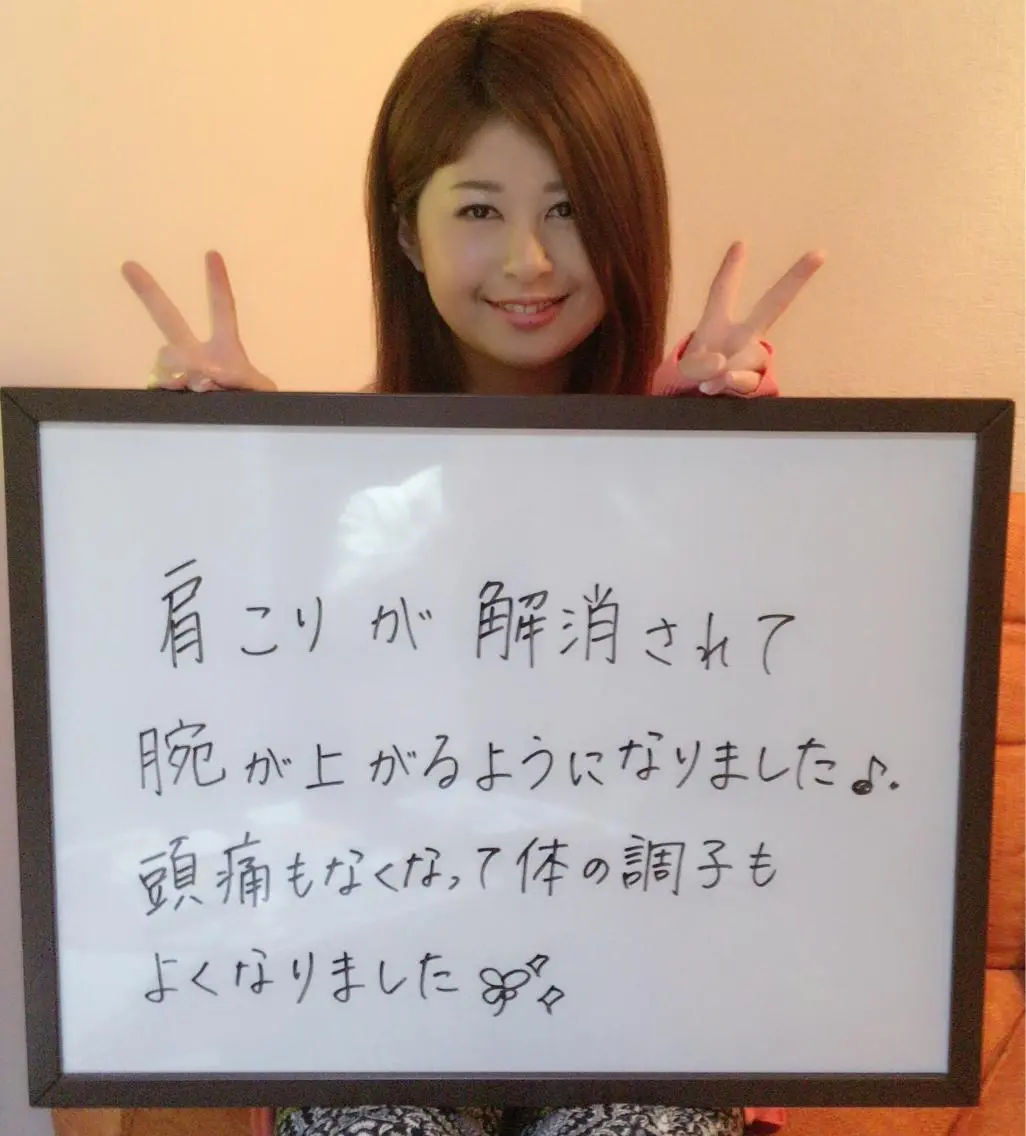 肩こりが解消されて
腕が上がるようになりました♪.
頭痛もなくなって体の調子も
よくなりました